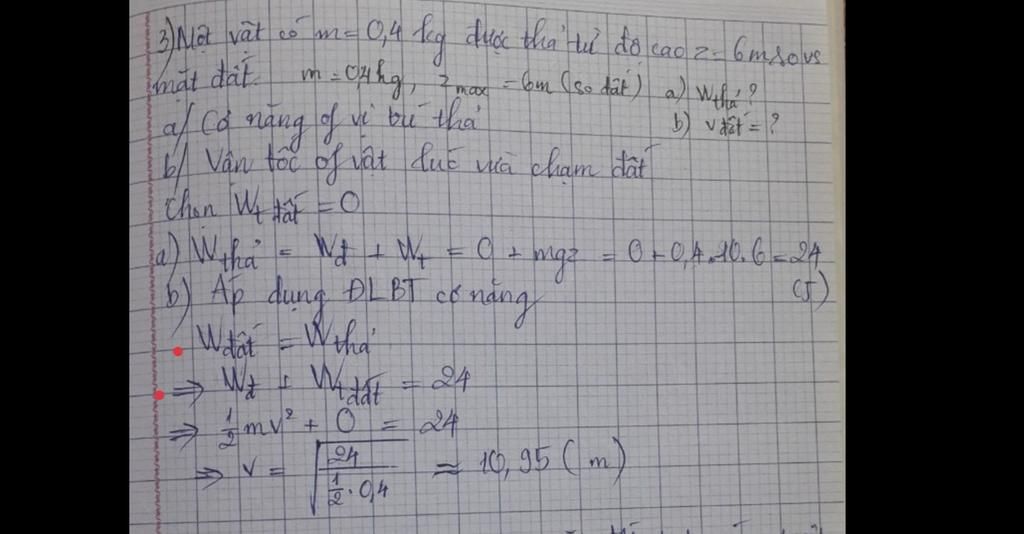 3) Một vật có m = 0,4 kg được thả từ độ cao z = 6m so vs
mặt đất. m = 0,4 kg, z max = 6m (so đất) a) Wthả?
b) v đất = ?
a/ Cơ năng of vị trí thả
b/ Vận tốc of vật lúc vừa chạm đất
Chọn Wt đất = 0
a) Wthả = Wđ + Wt = 0 + mgz = 0 + 0,4.10.6 = 24
(J)
b) Áp dụng ĐLBT cơ năng
Wđất = Wthả
⇒ Wđ + Wt đất = 24
⇒ 1/2 mv² + 0 = 24
⇒ v = √(24 / (1/2 . 0,4)) ≈ 10,95 (m)